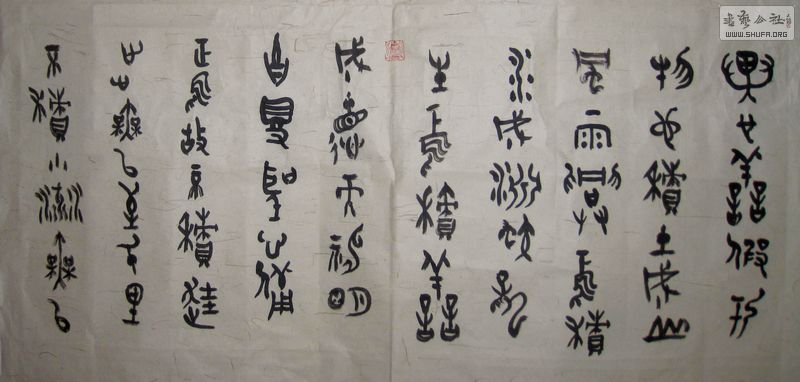 異也善假於
物也積土成山
風雨興焉積
水成淵蛟龍
生焉積善
成德而神明
自得聖心備
焉故不積跬
步無以至千里
不積小流無以
书艺公社
WWW.SHUFA.ORG